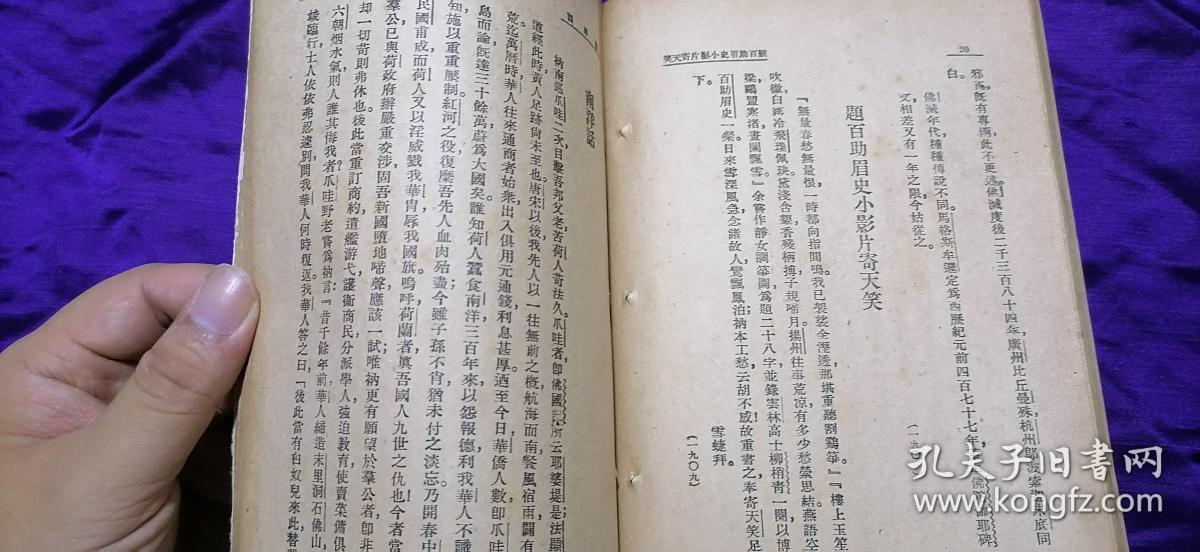 20
題百助眉史小影片寄天笑
邪正，旣有專函，此不更述。佛滅度後二千三百八十四年，廣州比丘曼殊，杭州
白。
佛滅年代，種種傳說不同。馬格斯牟選定爲西歷紀元前四百七十七年，佛
又相差又有一年之限，今姑從之。
題百助眉史小影片寄天笑
『無量春愁無量恨，一時都向指間鳴。我已袈裟全溼透，那堪重聽割鷄筝。』『樓上玉笙
吹徹，白露冷飛瓊佩玦。黛淺含顰，香殘棲夢，子規啼月。揚州往事荒凉，有多少愁縈思結。燕語空
梁，鷗盟寒渚，畫闌飄雪。』余嘗作靜女調筝圖，爲題二十八字，並錄雲林高士柳梢靑一闋，以博
百助眉史一粲。日來雪深風急，念諸故人，鸞飄鳳泊，衲本工愁，云胡不感，故重書之，奉寄天笑足
下。
雪蜨拜。
（一九〇九）
南洋話
衲南巡爪哇二次，目擊吾邦父老苦荷人苛法久。爪哇者，卽佛國
所云耶婆提是。法顯
道經此時，黃人足跡尙未至也。唐宋以後，我先人以一往無前之概，航海而南，餐風宿雨，闢有
荒迄萬曆時，華人往來通商者始衆，出入俱用元通錢，利息甚厚。迺至今日，華僑人數，卽爪哇
島而論，旣達三十餘萬，蔚爲大國矣。誰知荷人蠶食南洋三百年來，以怨報德，利我華人不識
知，施以重重壓制。紅河之役，復糜吾先人血肉殆盡。今雖子孫不肖，猶未付之淡忘。乃開春中
民國甫成，而荷人又以淫威戮我華胄，辱我國旗。嗚呼，荷蘭者，眞吾國人九世之仇也！今者當
羣公已與荷政府辦嚴重交涉，固吾新國墮地啼聲，應該一試。唯衲更有願望於羣公者，卽非
却一切苛則弗休也。後此當重訂商約，遣艦游弋，護衛商民；分派學人，強迫敎育，使賣菜傭俱
六朝烟水氣，則人誰其侮我者？爪哇野老嘗爲衲言：『昔千餘年前，華人締造末里洞石佛山，
竣，臨行，士人依依弗忍遽別，問我華人何時復返。我華人答之曰：「後此當有白奴兒來此，替
孔夫子旧书网
www.kongfz.com